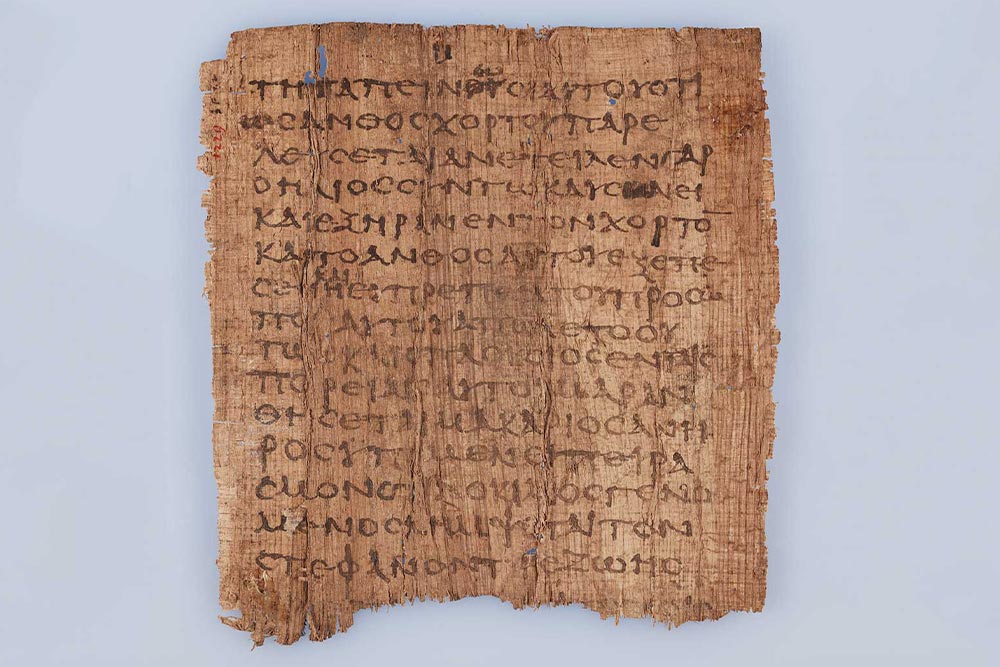 ΤΗΤΑΠΕΙΝΩϹΙΑΥΤΟΥΟΤΙ
ΩϹΑΝΘΟϹΧΟΡΤΟΥΠΑΡΕ
ΛΕΥϹΕΤΑΙΑΝΕΤΕΙΛΕΝΓΑΡ
ΟΗΛΙΟϹϹΥΝΤΩΚΑΥϹΩΝΕΙ
ΚΑΙΕΞΗΡΑΝΕΝΤΟΝΧΟΡΤΟ̅
ΚΑΙΤΟΑΝΘΟϹΑΥΤΟΥΕΞΕΠΕ
ϹΕΚΑΙΗΕΥΠΡΕΠΕΙΑΤΟΥΠΡΟϹΩ
ΠΟΥΑΥΤΟΥΑΠΩΛΕΤΟΟΥ
ΤΩϹΚΑΙΟΠΛΟΥϹΙΟϹΕΝΤΑΙϹ
ΠΟΡΕΙΑΙϹΑΥΤΟΥΜΑΡΑΝ
ΘΗϹΕΤΑΙΜΑΚΑΡΙΟϹΑΝΗ
ΡΟϹΥΠΟΜΕΝΕΙΠΕΙΡΑ
ϹΜΟΝΟΤΙΔΟΚΙΜΟϹΓΕΝΟ
ΜΕΝΟϹΛΗΜΨΕΤΑΙΤΟΝ
ϹΤΕΦΑΝΟΝΤΗϹΖΩΗϹ